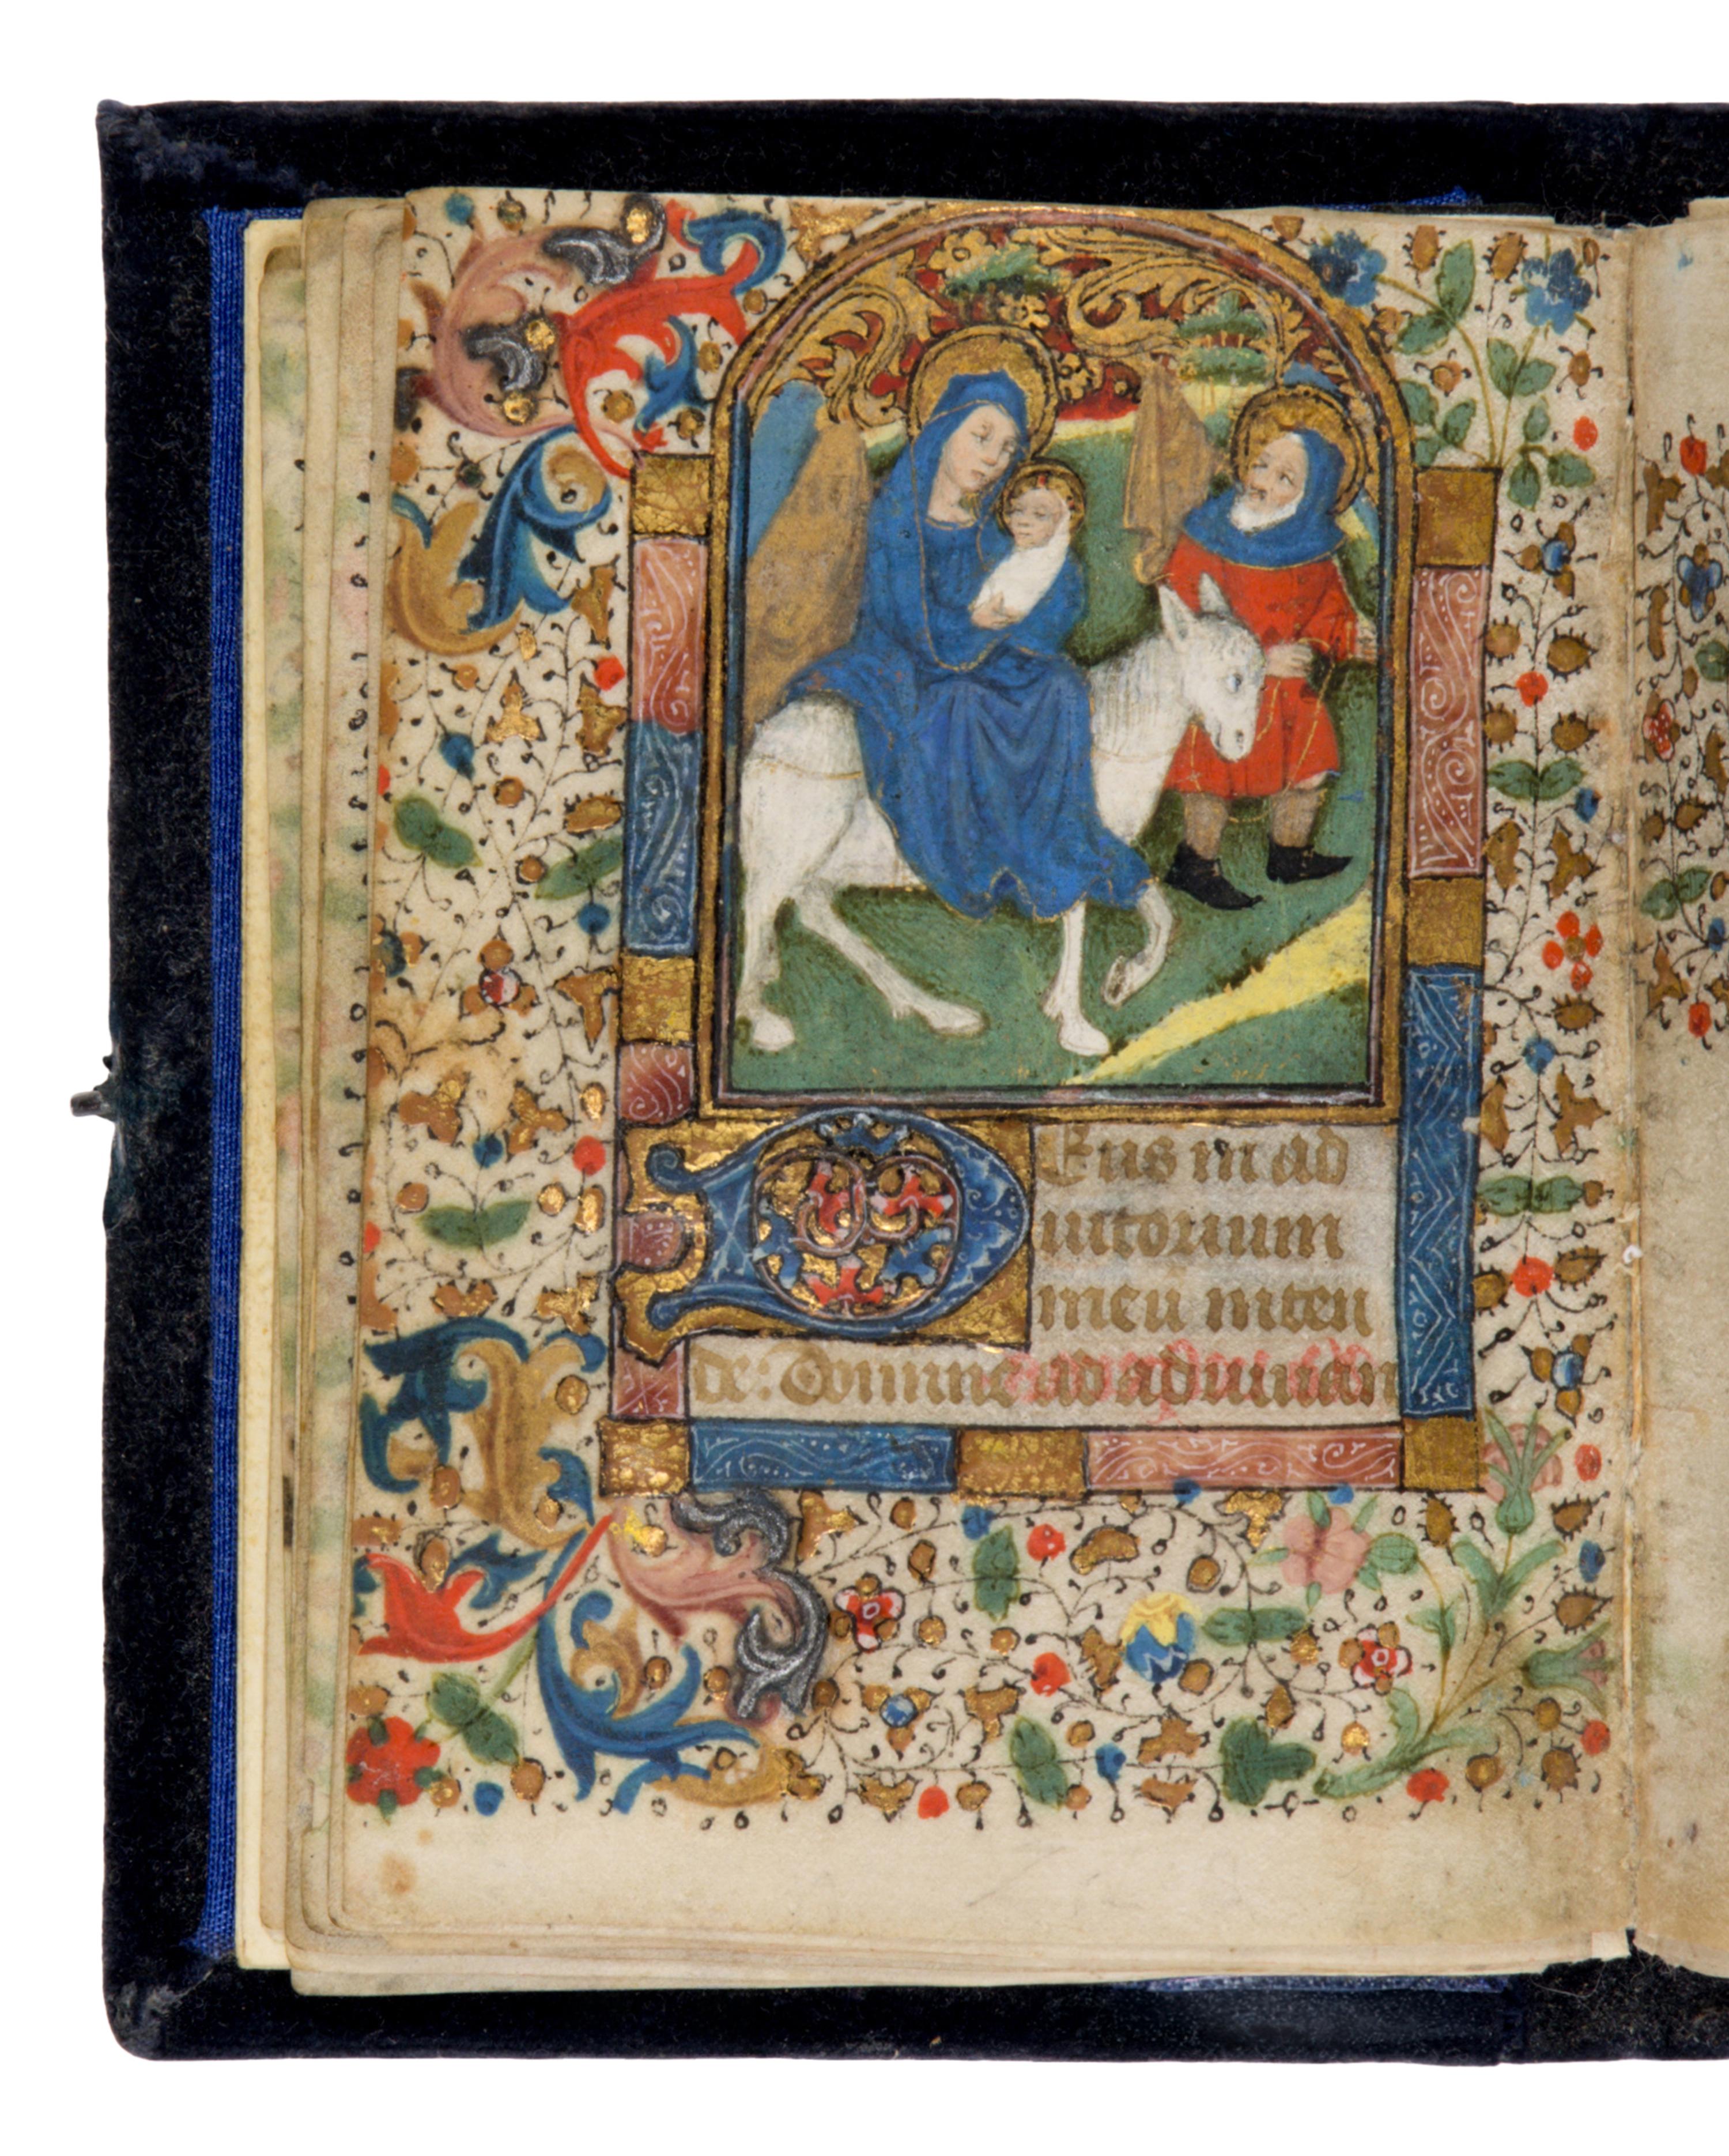 Deus in ad
iutorium
meū inten
de: Domine ad adiuuan